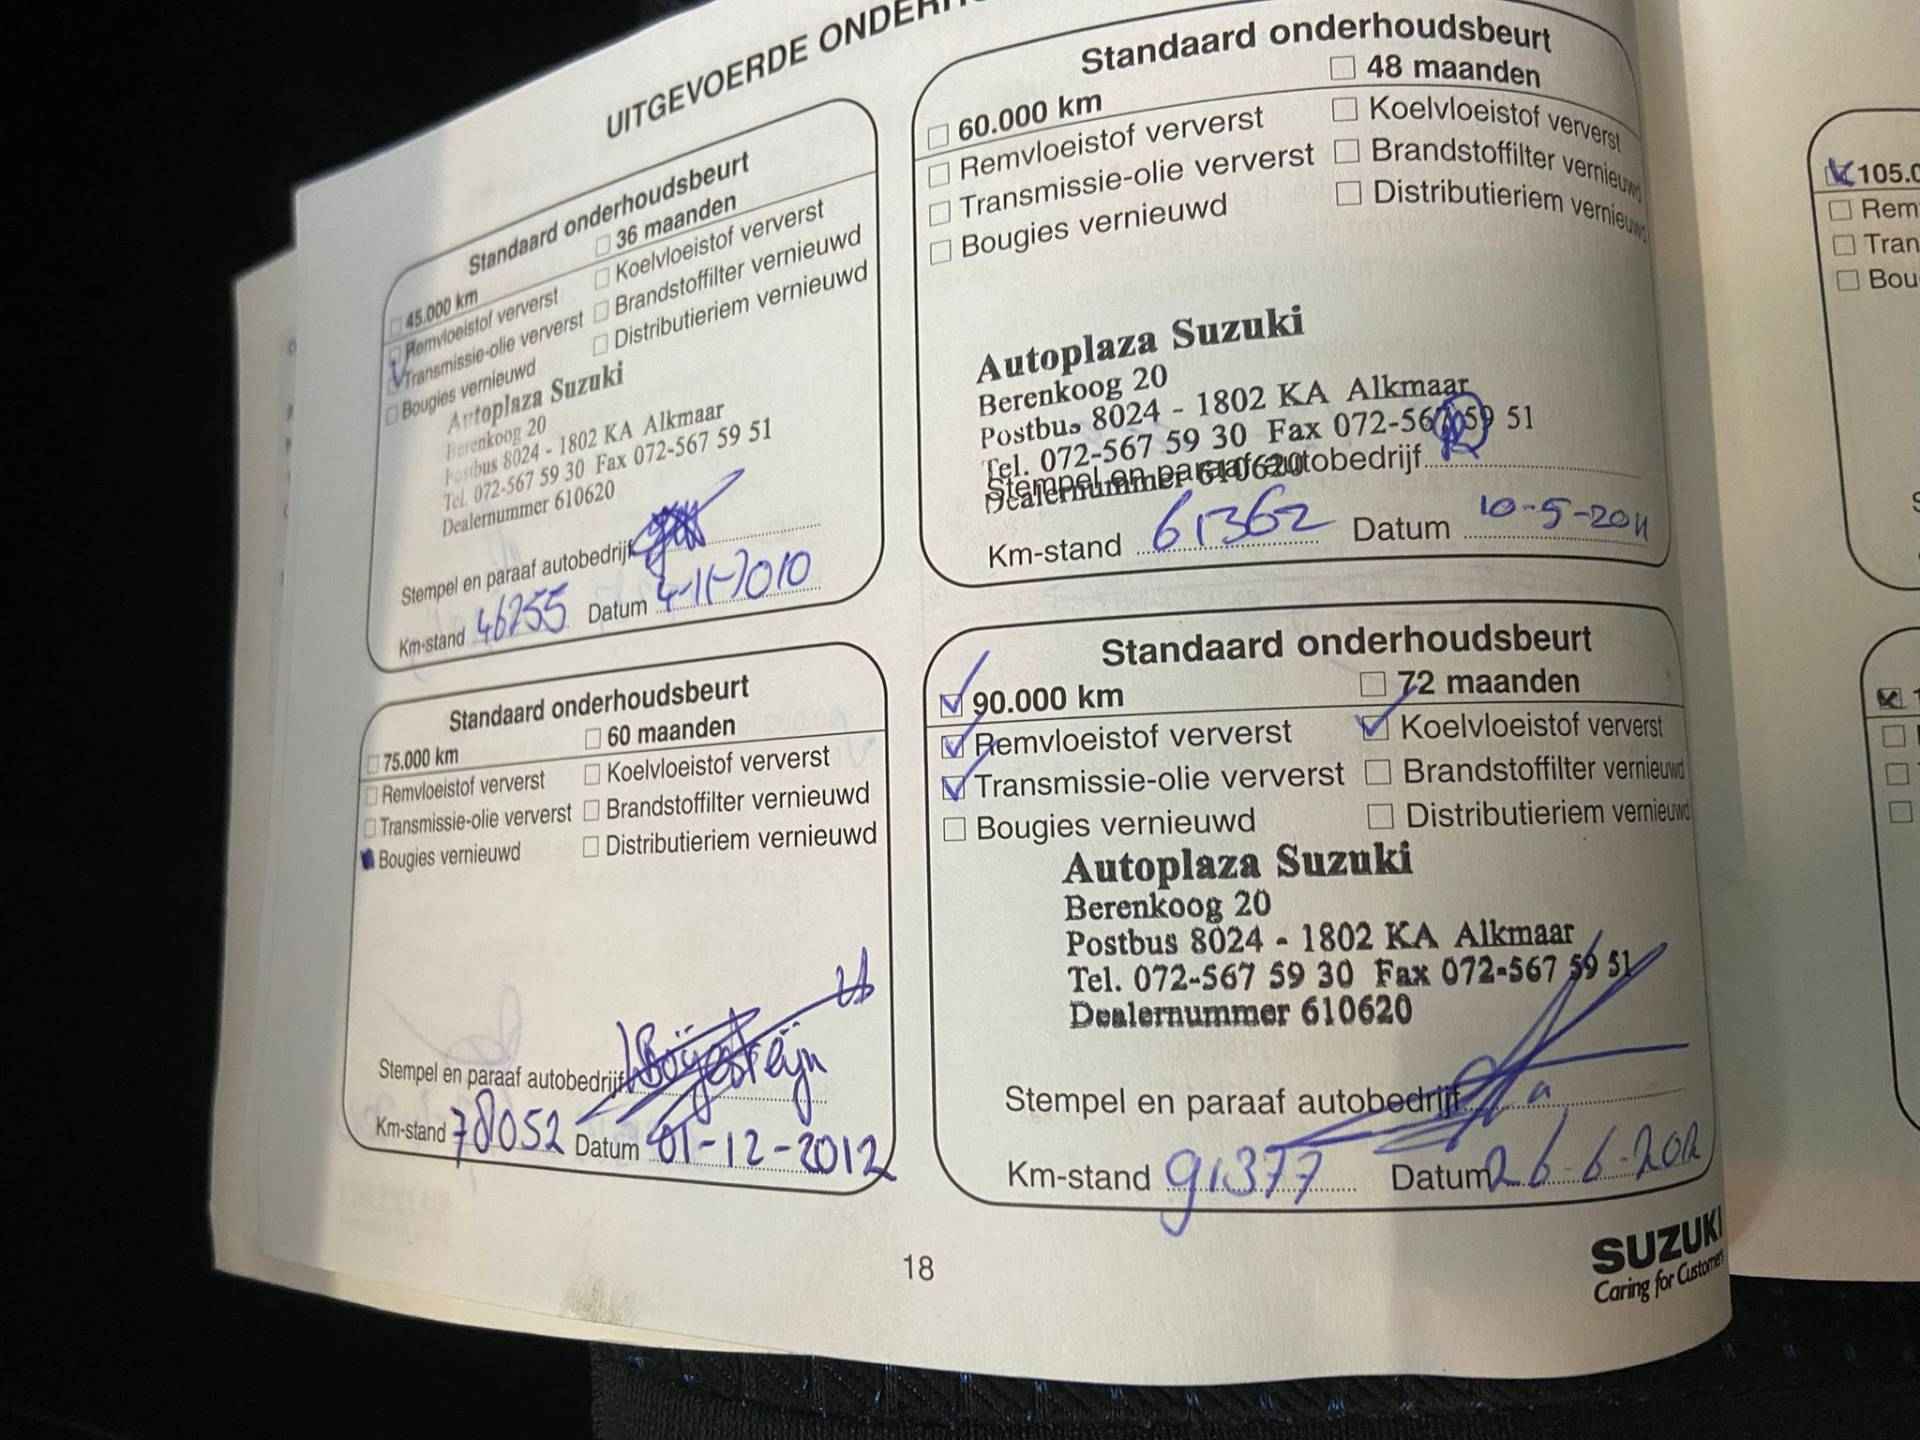 UITGEVOERDE
Standaard onderhoudsbeurt
45.000 km
36 maanden
Remvloeistof ververst
Koelvloeistof ververst
Transmissie-olie ververst
Brandstoffilter vernieuwd
Bougies vernieuwd
Distributieriem vernieuwd
Autoplaza Suzuki
Berenkoog 20
Postbus 8024 - 1802 KA Alkmaar
Tel. 072-567 59 30 Fax 072-567 59 51
Dealernummer 610620
Stempel en paraaf autobedrijf
Km-stand 46255 Datum 4-11-2010
Standaard onderhoudsbeurt
60.000 km
48 maanden
Remvloeistof ververst
Koelvloeistof ververst
Transmissie-olie ververst
Brandstoffilter vernieuwd
Bougies vernieuwd
Distributieriem vernieuwd
Autoplaza Suzuki
Berenkoog 20
Postbus 8024 - 1802 KA Alkmaar
Tel. 072-567 59 30 Fax 072-567 59 51
Stempel en paraaf autobedrijf
Dealernummer 610620
Km-stand 61362 Datum 10-5-2011
Standaard onderhoudsbeurt
75.000 km
60 maanden
Remvloeistof ververst
Koelvloeistof ververst
Transmissie-olie ververst
Brandstoffilter vernieuwd
Bougies vernieuwd
Distributieriem vernieuwd
Stempel en paraaf autobedrijf
Km-stand 78052 Datum 01-12-2012
Standaard onderhoudsbeurt
90.000 km
72 maanden
Remvloeistof ververst
Koelvloeistof ververst
Transmissie-olie ververst
Brandstoffilter vernieuwd
Bougies vernieuwd
Distributieriem vernieuwd
Autoplaza Suzuki
Berenkoog 20
Postbus 8024 - 1802 KA Alkmaar
Tel. 072-567 59 30 Fax 072-567 59 51
Dealernummer 610620
Stempel en paraaf autobedrijf
Km-stand 91377 Datum 26-6-2012
18
SUZUKI
Caring for Customers
105.0
Rem
Tran
Bou